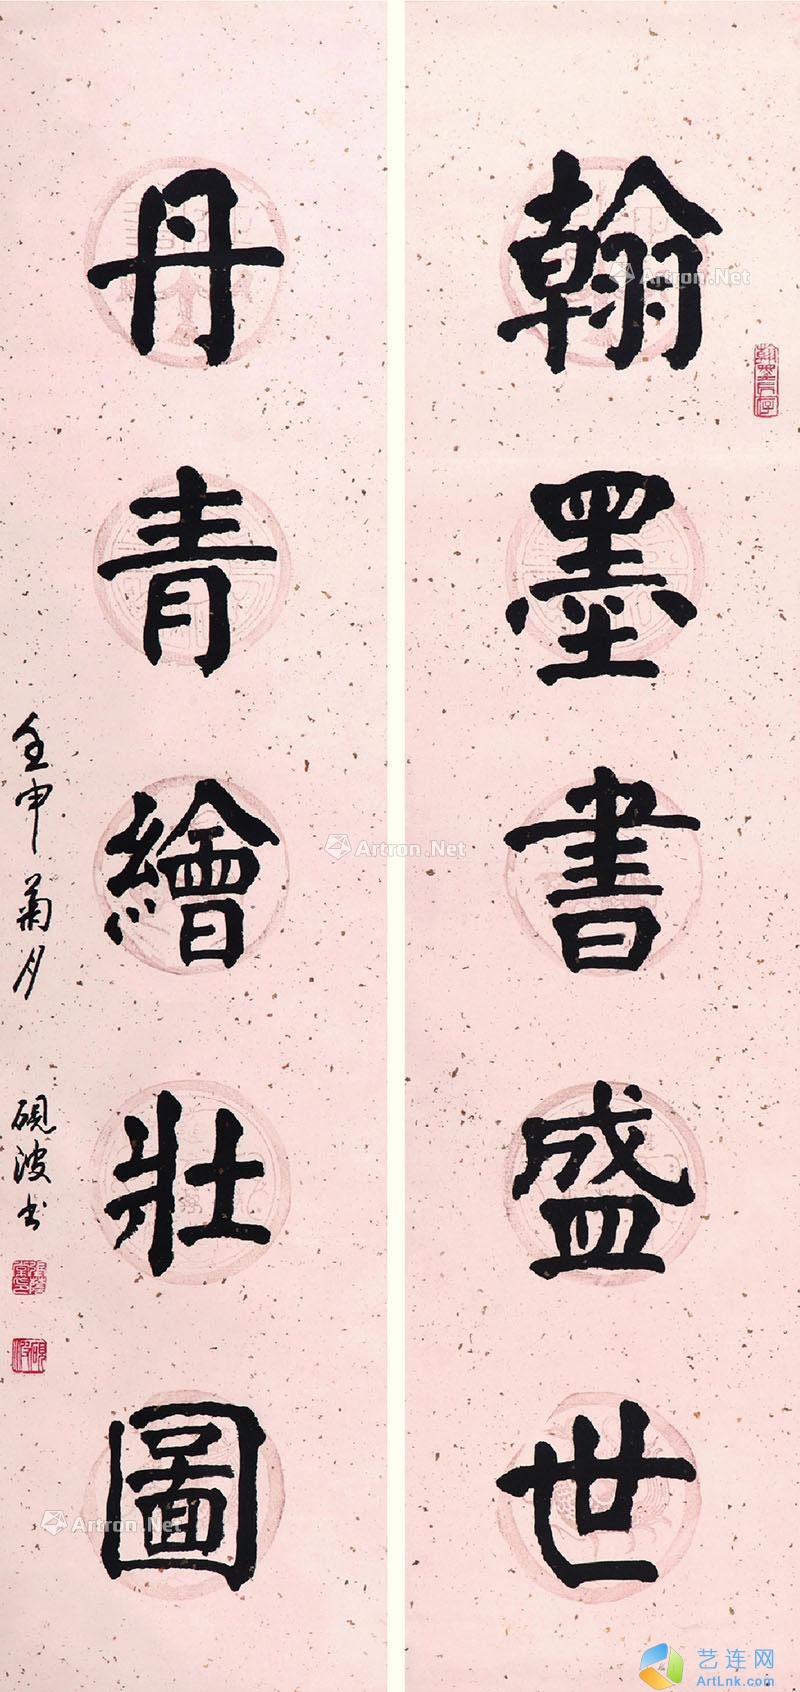 翰墨書盛世
丹青繪壯圖
壬申菊月 硯波书
Artron.Net
Artron.Net
Artron.Net
艺连网
ArtLnk.com